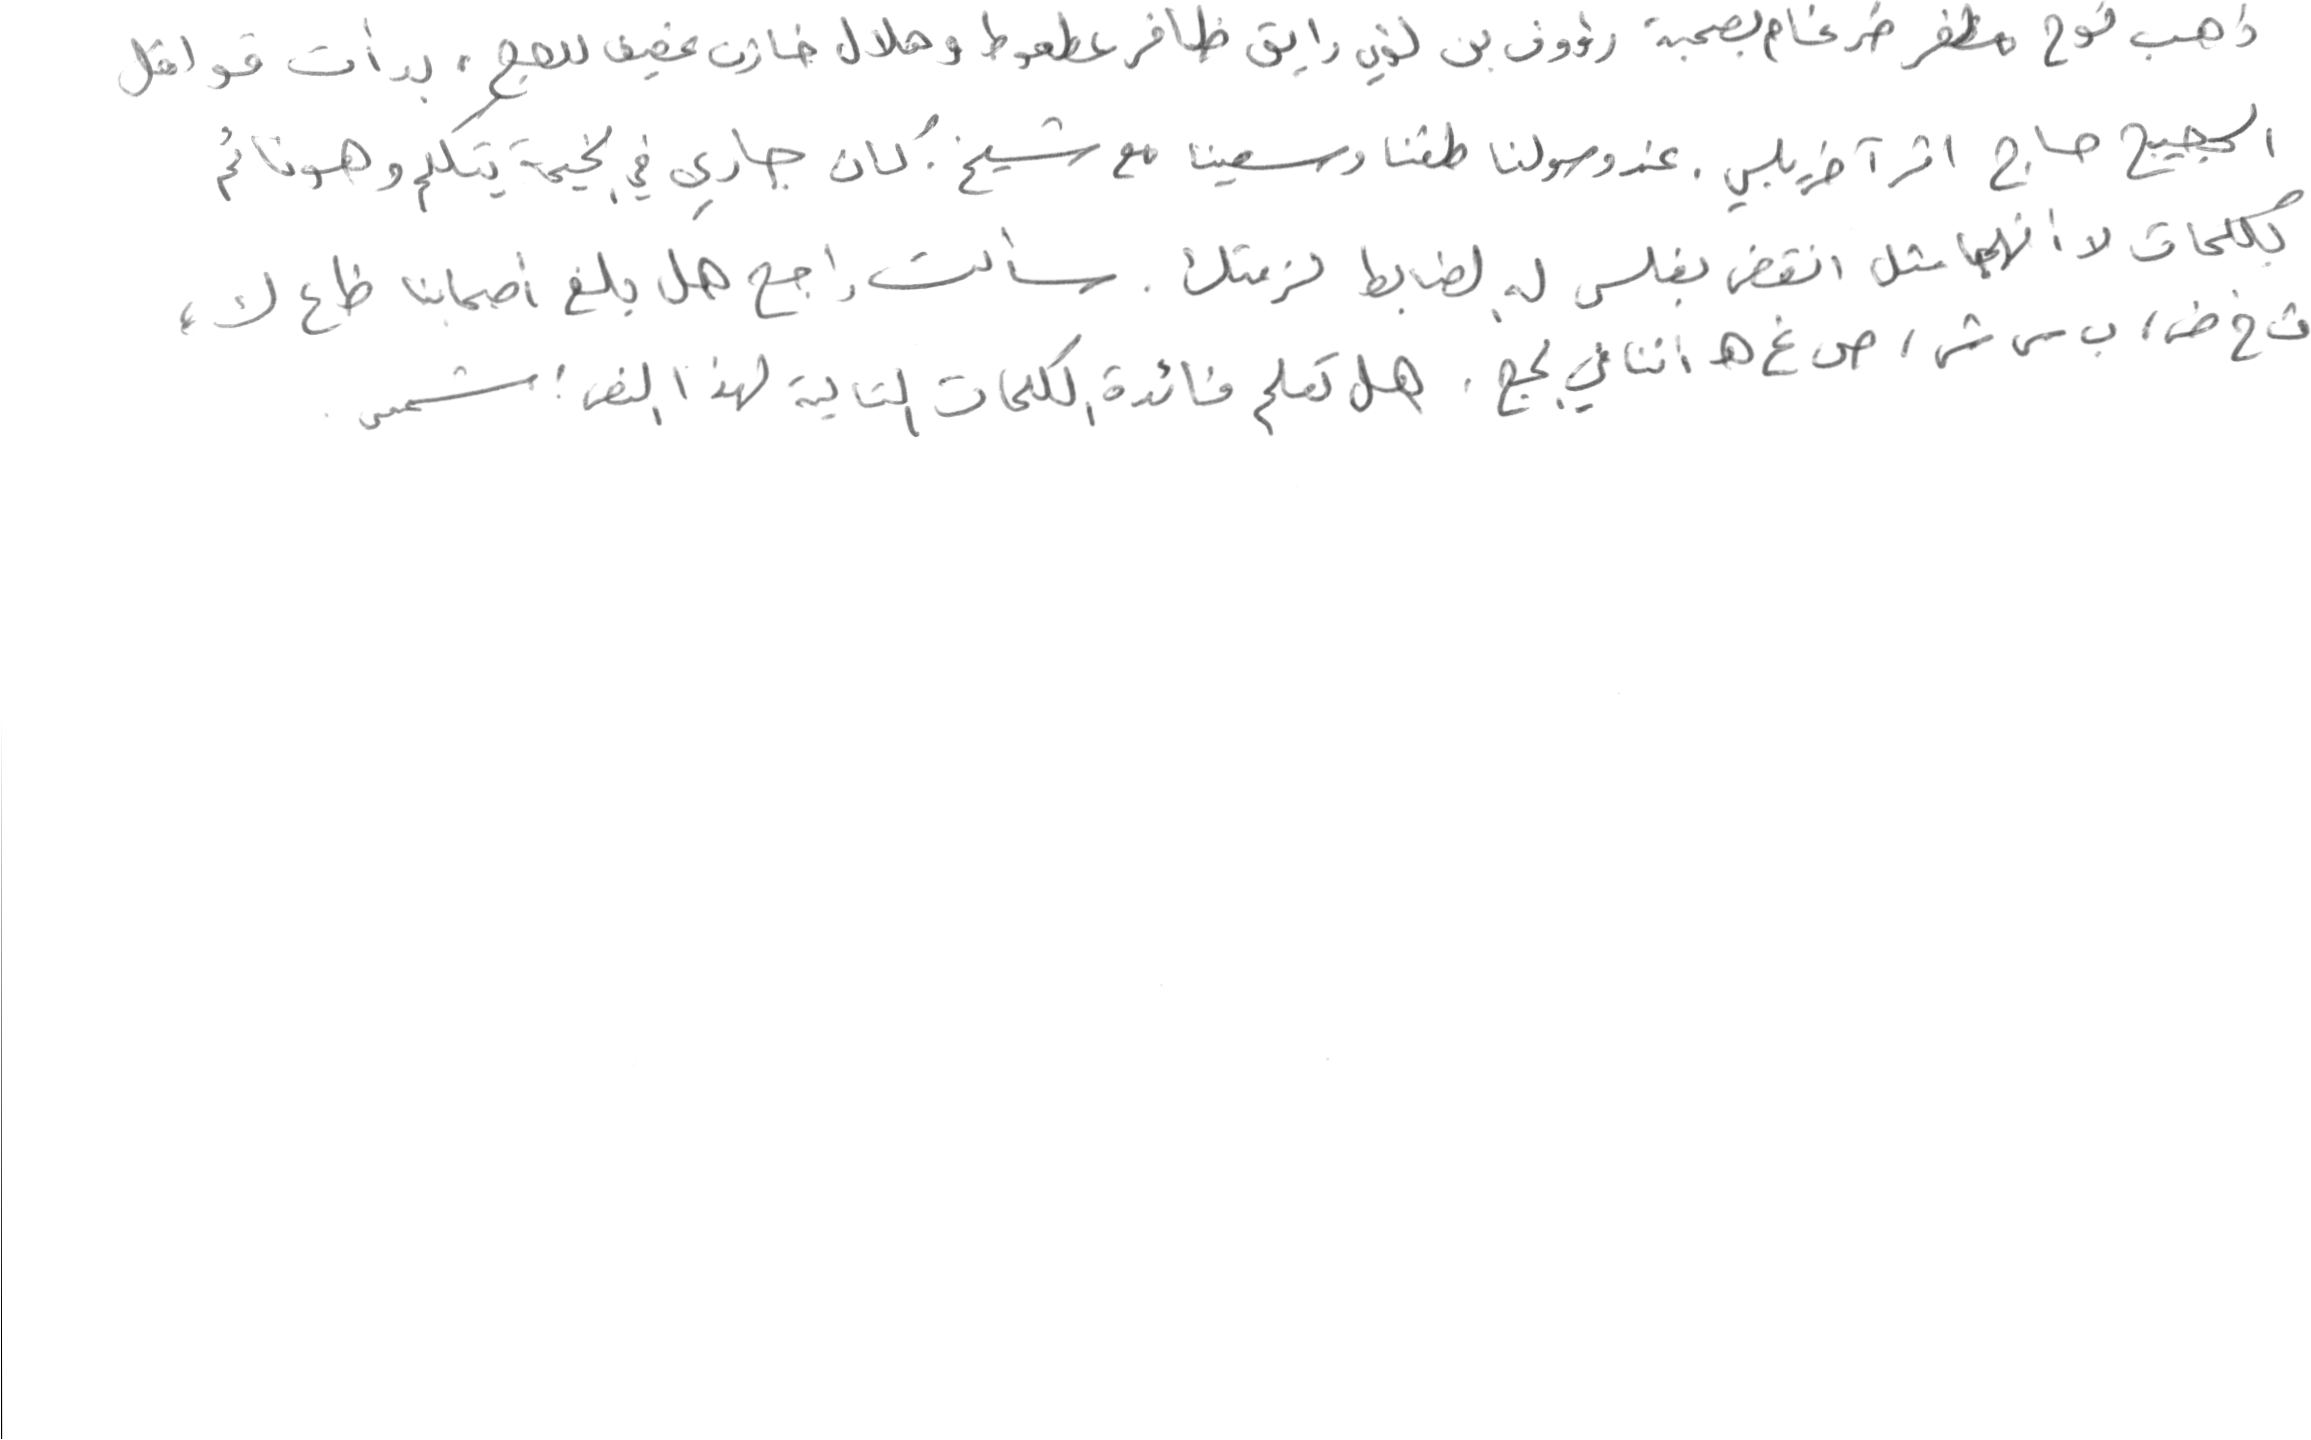 ذهب نوح مظفر ضرغام بصحبة رؤوف بن لؤي رايق ظافر عطعوط وهلال خازن غضيف للحج. بدأت قوافل
الحجيج حاج اثر آخر بلبي. عند وصولنا طفنا وسعينا مع شيخ. كان جاري في الخيمة يتكلم وهو نائم
بكلمات لا أفهمها مثل انقض بغلس له الضابط لزعتك. سألت راجح هل بلغ أصحابنا ظ ع ك،
ث خ ض، ب س ش، ص غ ه اثنا في الحج. هل تعلم فائدة الكلمات التالية لهذا النص: شمس.